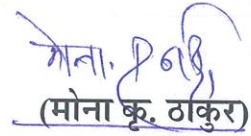 मोना.
(मोना कृ. ठाकुर)